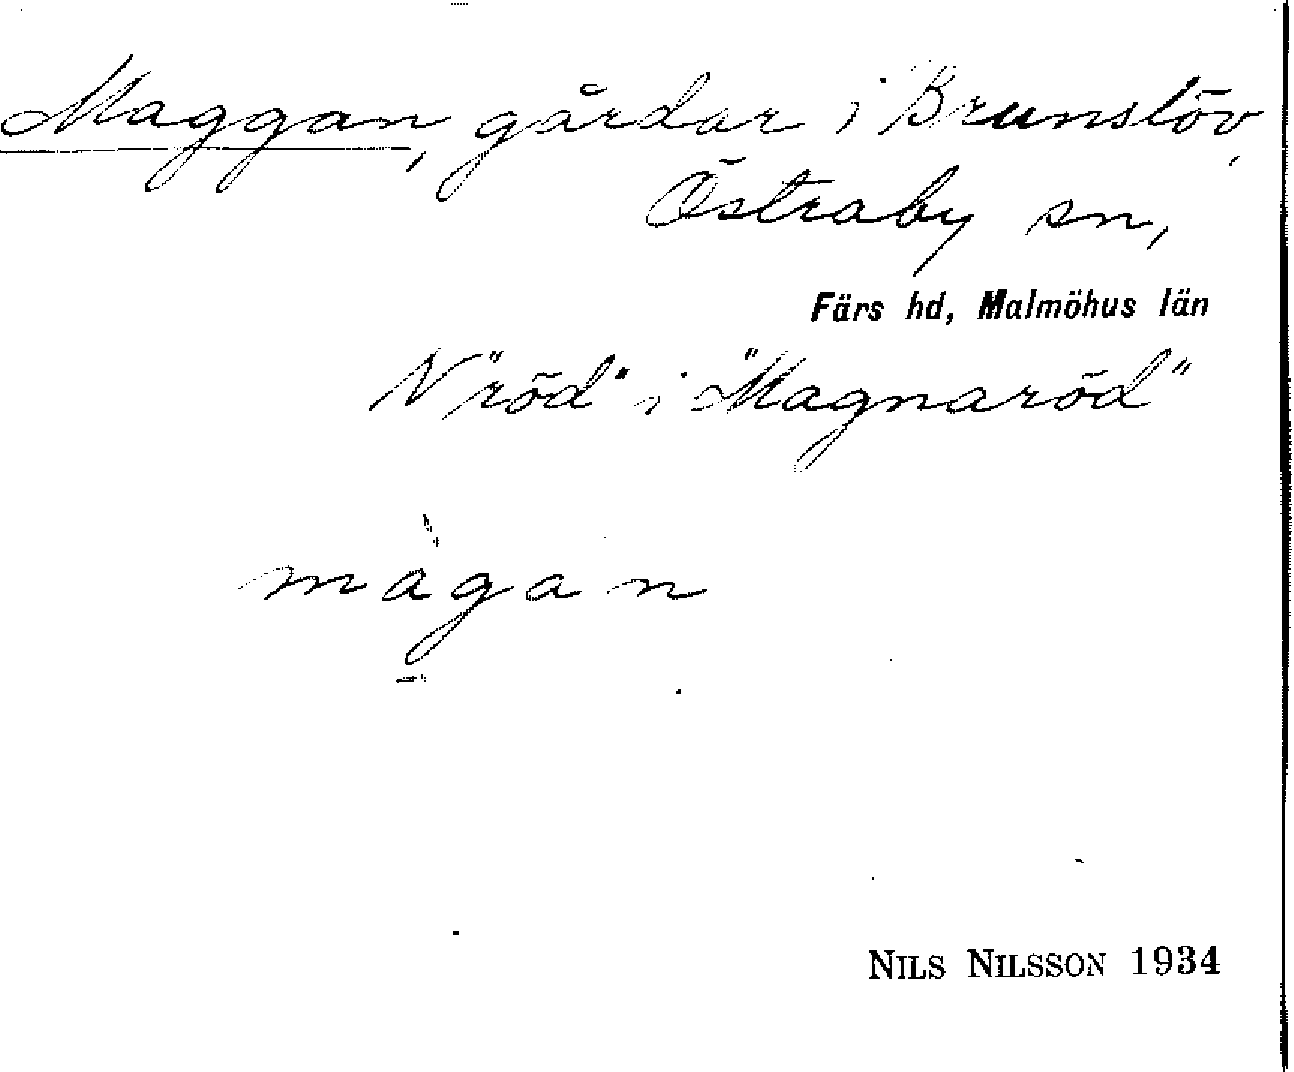 Maggan, gårdar i Brunslöv,
Östraby sn,
Färs hd, Malmöhus län
N "röd" i "Magnaröd"
màgan
NILS NILSSON 1934